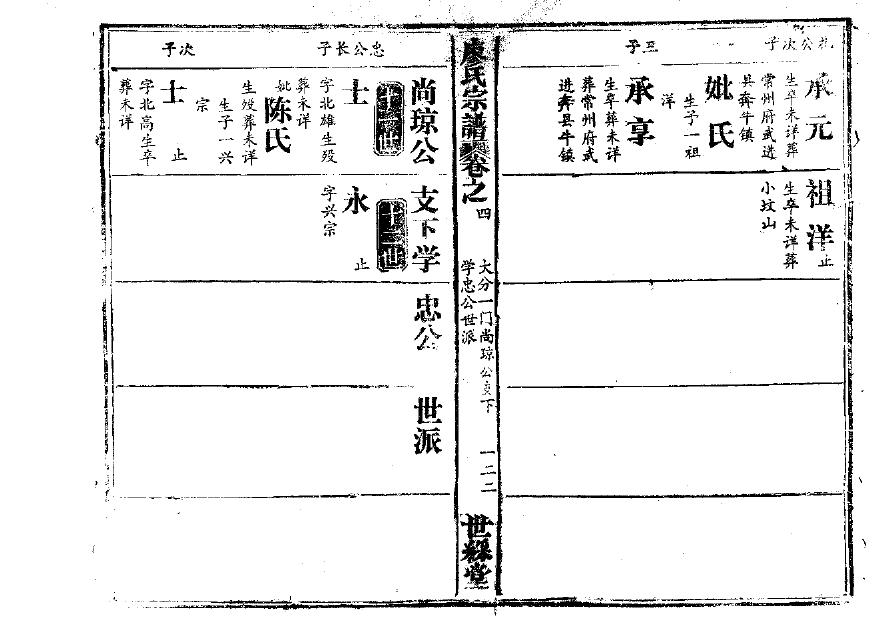 公次子
承元
生卒未详葬
常州府武进
县奔牛镇
妣氏
生子一祖
洋
三子
承享
生卒葬未详
葬常州府武
进奔县牛镇
祖洋
止
生卒未详葬
小坟山
廖氏宗譜
卷之四
大分一门尚琼公支下
学忠公世派
一二二
世綵堂
尚琼公支下学忠公世派
世
忠公长子
士
字北雄生殁
葬未详
妣陈氏
生殁葬未详
生子一兴
宗
次子
士
止
字北高生卒
葬未详
永
止
字兴宗